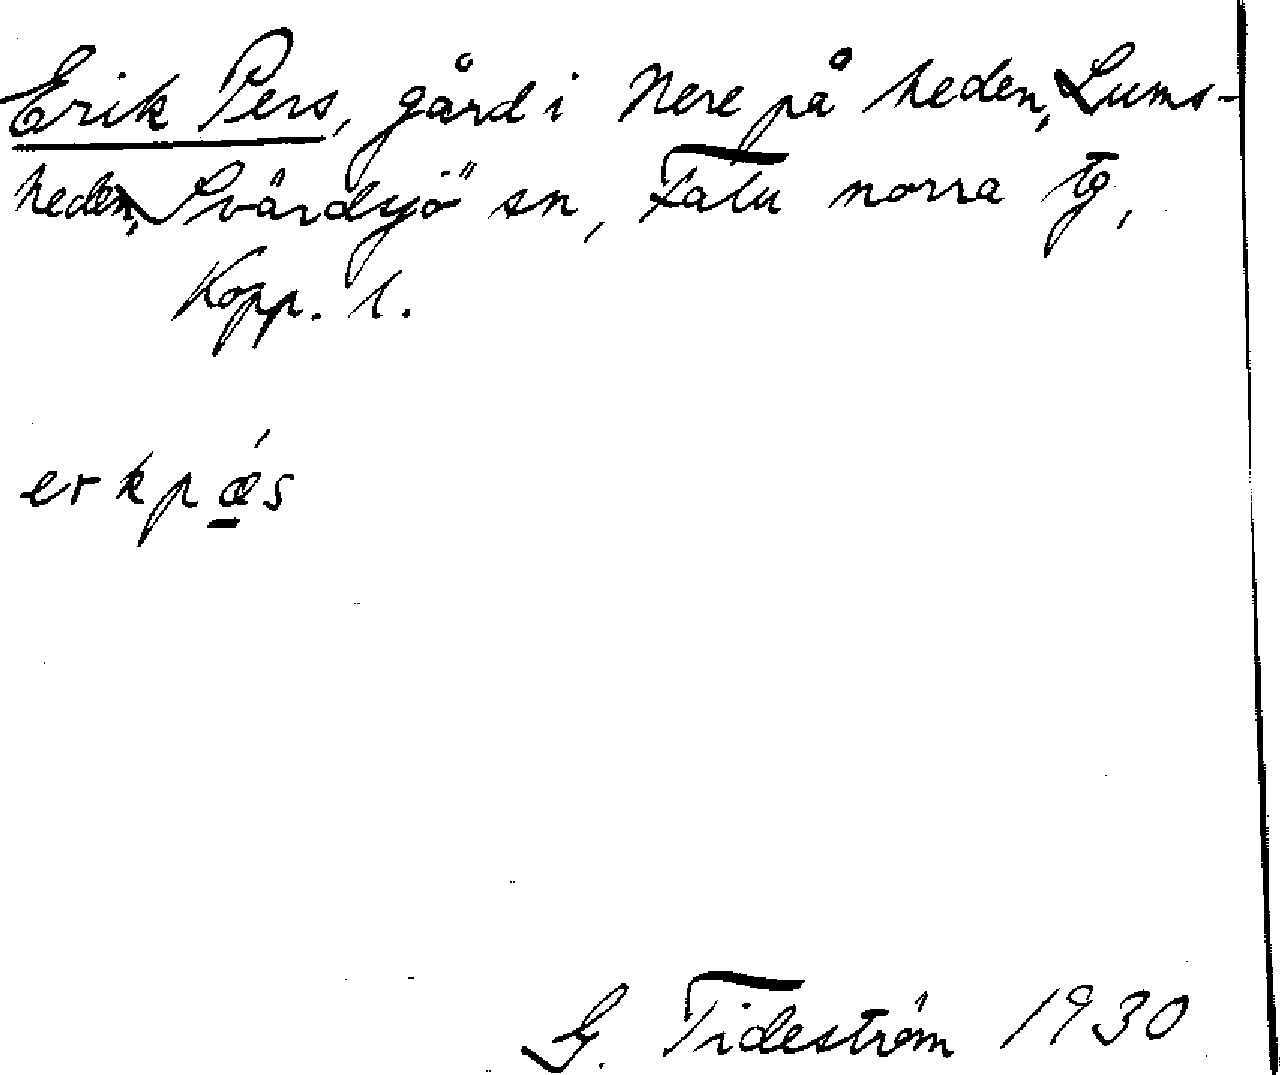 Erik Pers, gård i Nere på heden, Lums-
heden, Svärdsjö sn, Falu norra tg,
Kopp. l.
erkpǽs
G. Tideström 1930